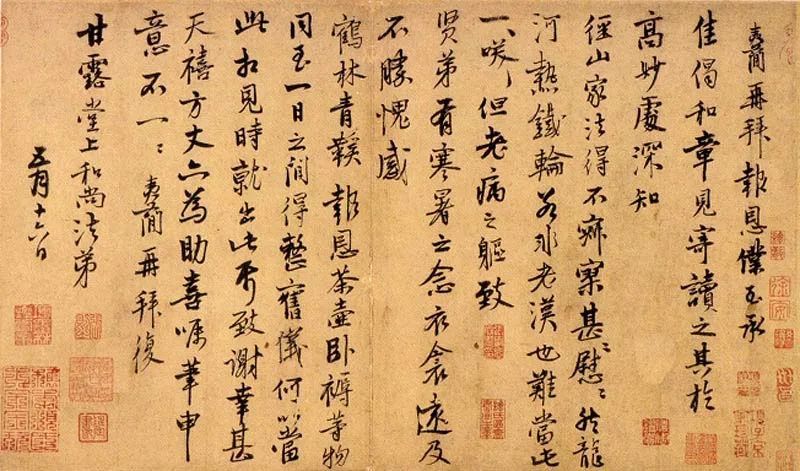 夷簡再拜報恩僕至承
佳偈和章見寄讀之其於
高妙處深知
徑山家法得不寂寞甚〻慰〻然龍
河熱鐵輪若非老漢也難當此
一咲但老病之軀致
賢弟有寒暑之念衣衾遠及
不勝愧感
鶴林青鞵報恩茶壺臥褥等物
同至一日之間得整舊儀何以當
此扣見時就出此布致謝幸甚
天禧方丈亦為助喜囑筆申
意不一〻夷簡再拜復
甘露堂上和尚法弟
五月十六日